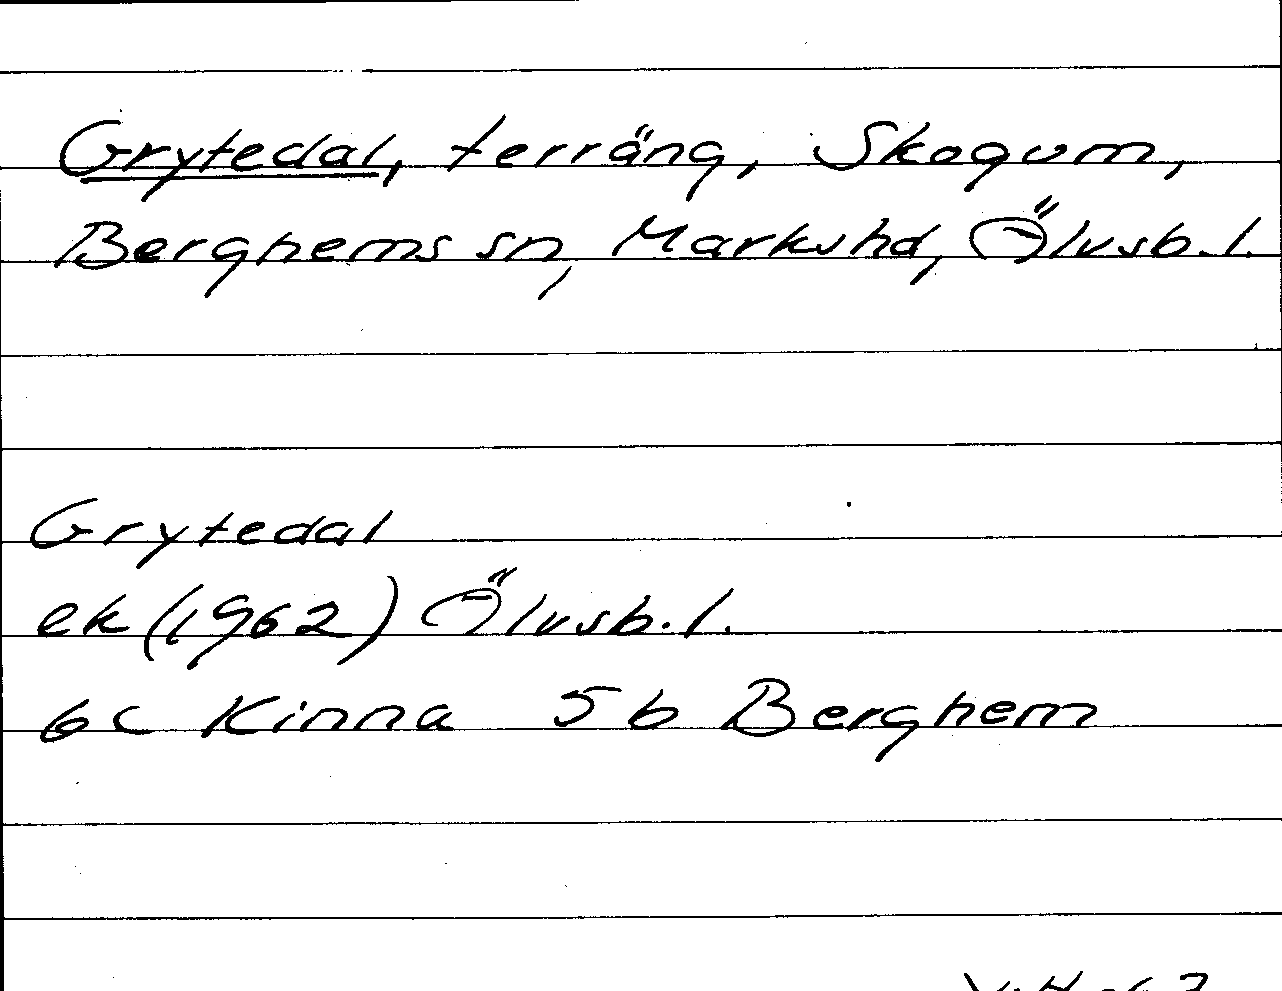 Grytedal, terräng, Skogum,
Berghems sn, Marks hd, Älvsb. l.
Grytedal
ek (1962) Älvsb. l.
6c Kinna 5b Berghem